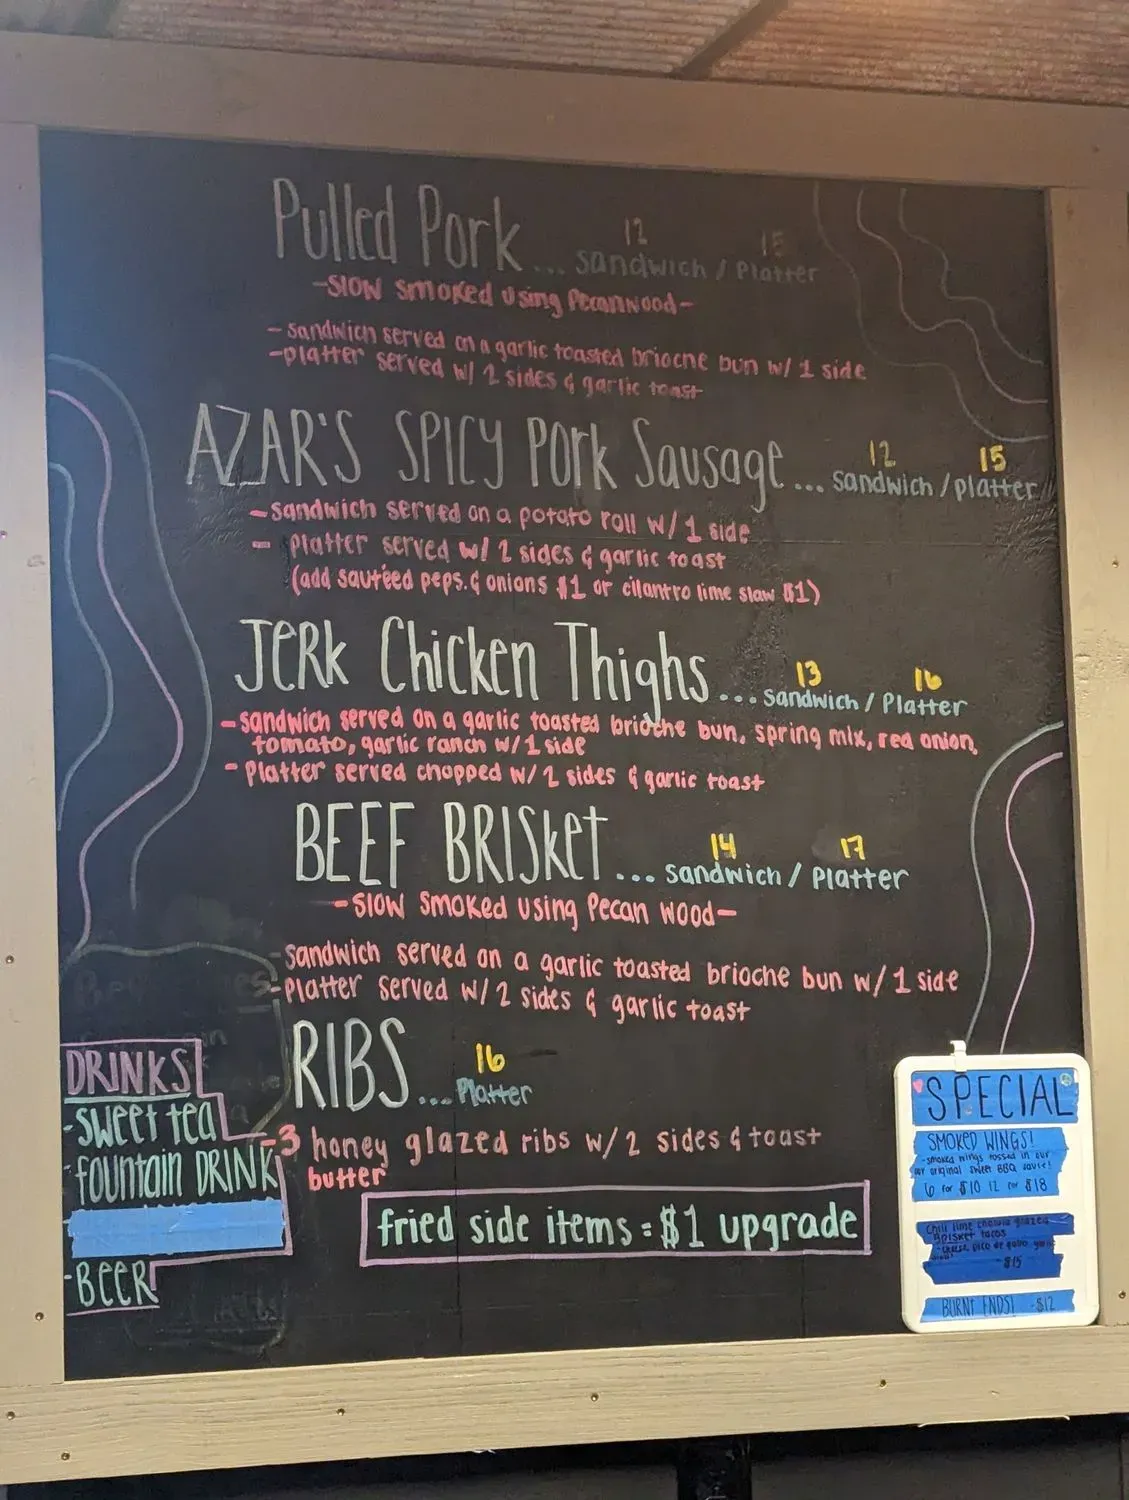 Pulled Pork... sandwich / Platter
12 15
-Slow smoked using Pecanwood-
- sandwich served on a garlic toasted brioche bun w/ 1 side
-platter served w/ 2 sides & garlic toast
AZAR'S SPICY PORK Sausage... sandwich / platter
12 15
- sandwich served on a potato roll w/ 1 side
- platter served w/ 2 sides & garlic toast
(add sautéed peps. & onions $1 or cilantro lime slaw $1)
JERK Chicken Thighs... sandwich / Platter
13 16
- sandwich served on a garlic toasted brioche bun, spring mix, red onion,
tomato, garlic ranch w/ 1 side
- Platter served chopped w/ 2 sides & garlic toast
BEEF BRISket... sandwich / Platter
14 17
-Slow smoked using Pecan wood-
-sandwich served on a garlic toasted brioche bun w/ 1 side
-Platter served w/ 2 sides & garlic toast
RIBS... Platter
16
-3 honey glazed ribs w/ 2 sides & toast
butter
fried side items = $1 upgrade
DRINKS
-sweet tea
-fountain DRINK
-BEER
SPECIAL
SMOKED WINGS!
-smoked wings tossed in our
our original sweet BBQ sauce!
6 for $10 12 for $18
Chili lime cholula glazed
brisket tacos
-cheese, pico de gallo, garlic
$15
BURNT ENDS! -$12